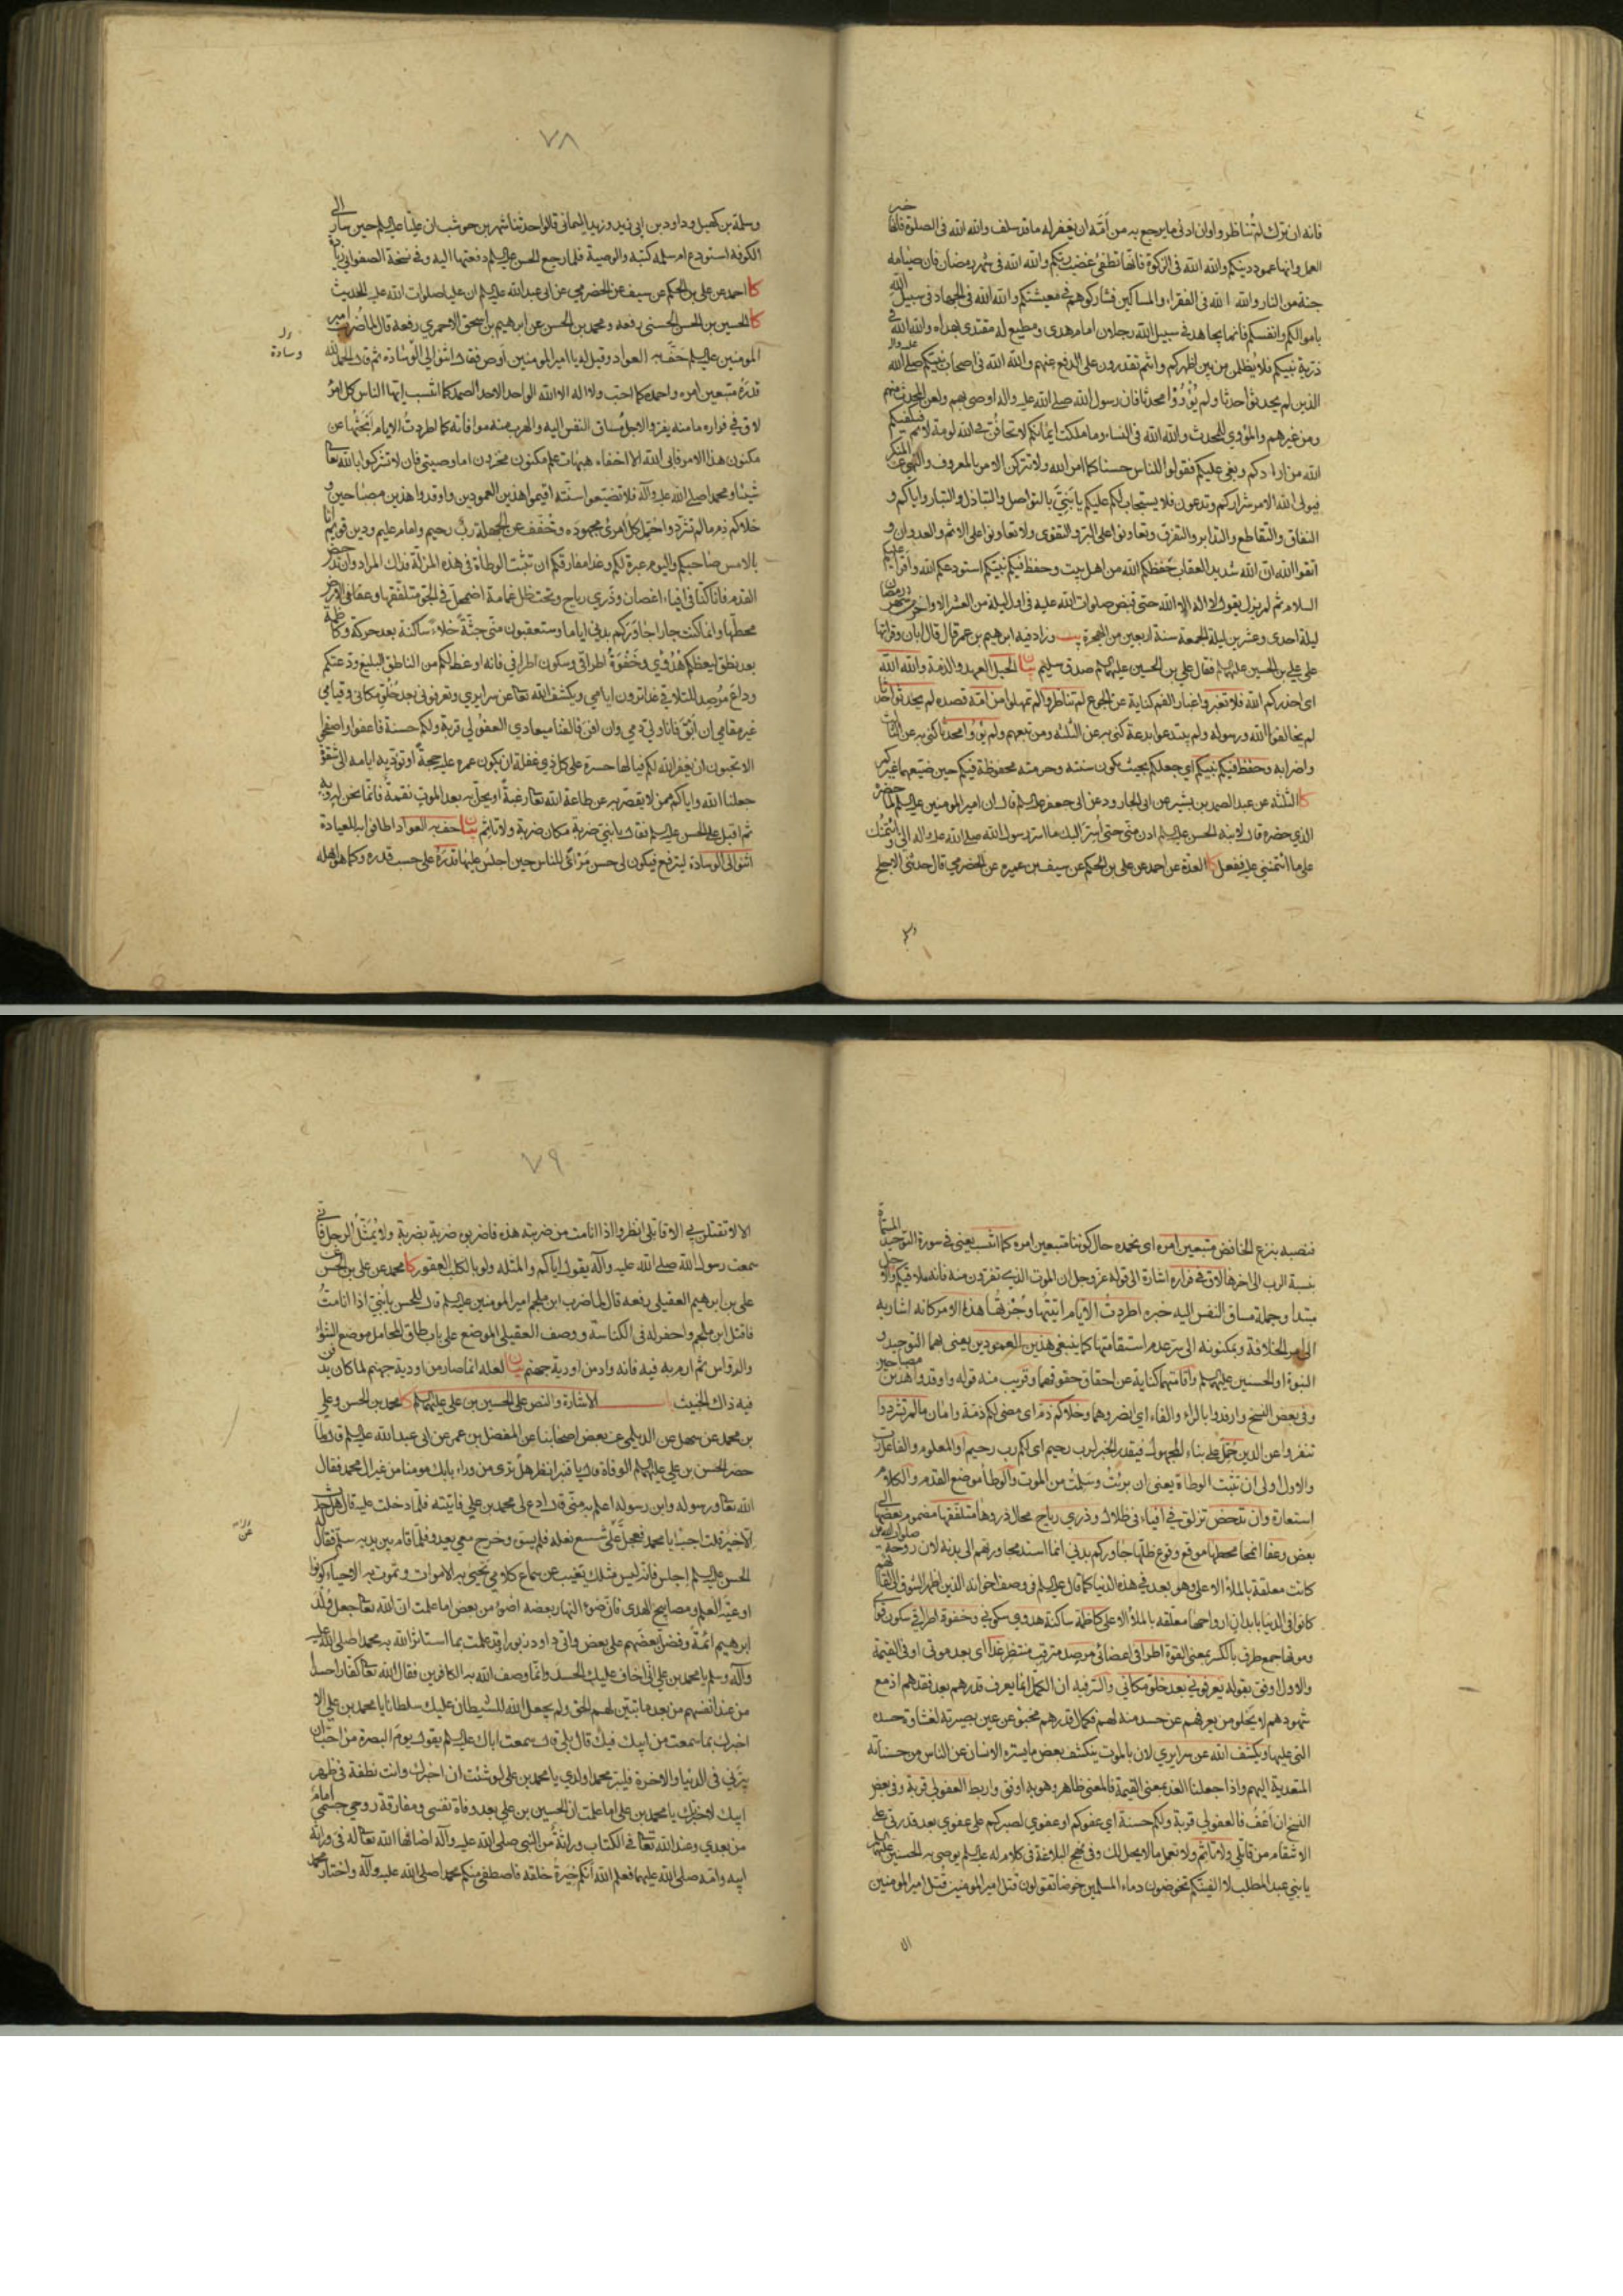 فانه ان ترك لم تناظروا وان ادنى ما يرجع به من أمّه ان يغفر له ما قد سلف والله الله فى الصلوة فانها خير
العمل وانها عمود دينكم والله الله فى الزكوة فانها تطفئ غضب ربكم والله الله فى شهر رمضان فان صيامه
جنة من النار والله الله فى الفقراء والمساكين فشاركوهم فى معيشتكم والله الله فى الجهاد فى سبيل الله
باموالكم وانفسكم فانما يجاهد فى سبيل الله رجلان امام هدى ومطيع له مقتد بهداه والله الله فى
ذرية نبيكم فلا يُظلمن بين اظهركم وانتم تقدرون على الدفع عنهم والله الله فى اصحاب نبيكم صلى الله عليه واله
الذين لم يحدثوا حدثا ولم يُؤْوُوا محدثا فان رسول الله صلى الله عليه واله اوصى بهم ولعن المحدث منهم
ومن غيرهم والمؤوي للمحدث والله الله فى النساء وما ملكت ايمانكم لا تخافُنّ فى الله لومة لائم فيكفيكم
الله من ارادكم وبغى عليكم فقولوا للناس حسنا كما امر الله ولا تتركن الامر بالمعروف والنهى عن المنكر
فيولى الله الامر شراركم وتدعون فلا يستجاب لكم عليكم يا بَنِيَّ بالتواصل والتباذل والتبار واياكم و
النفاق والتقاطع والتدابر والتفرق وتعاونوا على البر والتقوى ولا تعاونوا على الاثم والعدوان و
اتقوا الله ان الله شديد العقاب حفظكم الله من اهل بيت وحفظ فيكم نبيكم استودعكم الله واقرأ عليكم
السلام ثم لم يزل يقول لا اله الا الله حتى قبض صلوات الله عليه فى اول ليلة من العشر الاواخر من شهر رمضان
ليلة احدى وعشرين ليلة الجمعة سنة اربعين من الهجرة يب وزاد فيه ابرهيم بن عمر قال قال ابان وقراتها
على علي بن الحسين عليهما السلم فقال علي بن الحسين عليهما السلم صدق سليم بيان الحبل العهد والذمة والله الله
اى احذركم الله فلا تغيروا عنا الفم كناية عن الجوع لم تناظروا لم تمهلوا من امّه قصده لم يحدثوا حدثا
لم يخالفوا الله ورسوله ولم يبتدعوا بدعة كنى به عن الثلثة ومن تبعهم ولم يؤوا محدثا كنى به عن الثالث
واضرابه وحفظ فيكم نبيكم اى جعلكم بحيث يكون سنته وحرمته محفوظة فيكم حين ضيعها غيركم
كا الثلثة عن عبد الصمد بن بشير عن ابى الجارود عن ابى جعفر عليه السلم قال ان امير المومنين عليه السلم لما حضره
الذي حضره قال لابنه الحسن عليه السلم ادن منّى حتى أُسرّ اليك ما اسرّ رسول الله صلى الله عليه واله الي وائتمنك
على ما ائتمننى عليه ففعل كا العدّة عن احمد عن على بن الحكم عن سيف بن عميره عن الحضرمي قال حدثنى الاجلح
٧٨
وسلمة بن كهيل وداود بن ابى يزيد وزيد اليمانى قالوا حدثنا شهر بن حوشب ان عليا عليه السلم حين سار الى
الكوفه استودع ام سلمه كتبه والوصية فلما رجع الحسن عليه السلم دفعتها اليه وفى نسخة الصفوانى زيادة
كا احمد عن على بن الحكم عن سيف عن الحضرمي عن ابى عبد الله عليه السلم ان عليا صلوات الله عليه الحديث
كا الحسين بن الحسن الحسنى رفعه ومحمد بن الحسن عن ابرهيم بن اسحق الاحمري رفعه قال لما ضُرب امير
المومنين عليه السلم حَفَّ به العواد وقيل له يا امير المومنين اوص فقال اثنوا لي الوسادة ثم قال الحمد لله
وسادة
قدرَه متبعين امره واحمده كما احب ولا اله الا الله الواحد الاحد الصمد كما انتسب ايها الناس كل امرئ
لاقٍ في فراره ما منه يفر والاجل مساق النفس اليه والهرب منه موافاته كم اطردتُ الايام ابحثها عن
مكنون هذا الامر فابى الله الا اخفاءه هيهات علم مكنون مخزون اما وصيتى فان لا تشركوا بالله تعالى
شيئا ومحمدا صلى الله عليه وآله فلا تضيّعوا سنّته اقيموا هذين العمودين واوقدوا هذين مصباحين و
خلاكم ذم ما لم تشردوا حُمّل كلُّ امرئ مجهوده وخُفّف عن الجهلة ربٌّ رحيم وامام عليم ودين قويم انا
بالامس صاحبكم واليوم عبرة لكم وغدا مفارقكم ان تثبت الوطاة فى هذه المزلّة فذاك المراد وان تدحض
القدم فانا كنّا في افياء اغصان وذَري رياح وتحت ظل غمامة اضمحل فى الجو متلفّقها وعفا فى الارض
محطّها وانما كنت جارا جاوركم بدني اياما وستعقبون منّى جثّةً خلاءً ساكنة بعد حركة وكاظمة
بعد نطق ليعظكم هُدُوّي وخُفُوتُ اطراقى وسكون اطرافي فانه اوعظ لكم من الناطق البليغ ودّعتكم
وداعَ مُرصِد للتلاقي غدا ترون ايامي ويكشف الله تعالى عن سرايري وتعرفونى بعد خُلُوّ مكانى وقيامي
غير مقامى ان أَبْقَ فانا ولي دمي وان افنَ فالفنا ميعادي العفو لي قربة ولكم حسنة فاعفوا واصفحوا
الا تحبون ان يغفر الله لكم فيا لها حسرة على كل ذي غفلة ان يكون عمره عليه حجّةً او تؤدّيه ايامه الى شقوة
جعلنا الله واياكم ممن لا يقصّر به عن طاعة الله تعالى رغبةٌ او يحلّ به بعد الموت نقمةٌ فانما نحن له وبه
ثم اقبل على الحسن عليه السلم فقال يا بنيّ ضربة مكان ضربة ولا تاثم بيان حف به العواد اطافوا به للعيادة
اثنوا لى الوسادة ليرتفع فيكون لى حسن مَرْأىً للناس حين اجلس عليها قدرَه على حسب قدره وكما هو اهله
فنصبه بنزع الخافض متبعين امره اى نحمده حال كوننا متبعين امره كما انتسب يعنى فى سورة التوحيد المسماة
بنسبة الرب الى اخرها لاق فى فراره اشارة الى قوله عز وجل ان الموت الذى تفرون منه فانه ملاقيكم والاجل
مبتدا وجملة مساق النفس اليه خبره اطردتُ الايام اتيتُها وجُزْتُها هذا الامر كانه اشار به
الى امر الخلافة وبمكنونه الى سر عدم استقامتها كما ينبغى هذين العمودين يعنى بهما التوحيد و
النبوة او الحسنين عليهما السلم واقامتهما كناية عن احقاق حقوقهما وقريب منه قوله واوقدوا هذين مصباحين
وفى بعض النسخ وارفدوا بالراء والفاء اى انصروهما وخلاكم ذمّ اى مضى لكم ذمّة وامان ما لم تشردوا
تنفروا عن الدين حُمّل على بناء المجهول فيقدر الخبر لرب رحيم اى لكم رب رحيم او المعلوم والفاعل رب
والاول اولى ان تثبت الوطاة يعنى ان برئتُ وسَلِمتُ من الموت والوطأ موضع القدم والكلام
استعارة وان تدحض تزلق فى افياء فى ظلال وذَري رياح محال ذروها متلفّقها مضموم بعضها الى
بعض وعفا انمحا محطها موقع وقوع ظلها جاوركم بدنى انما اسند مجاورتهم الى بدنه لان روحه صلوات الله عليه
كانت معلقة بالملأ الاعلى وهو بعد فى هذه الدنيا كما قال عليه السلم فى وصف اخوانه الذين اظهر الشوق الى لقائهم
كانوا فى الدنيا بابدان ارواحها معلقه بالملأ الاعلى كاظمة ساكتة هدوي سكونى وخفوت اطراقي سكون قوا
وموتها جمع طرف بالكسر بمعنى القوة اطرافى اعضائى مرصد مترقب منتظر غدا اى بعد موتى او فى القيمة
والاول اوفق بقوله تعرفونى بعد خلوّ مكانى والسّر فيه ان الكمّل انما يعرف قدرهم بعد فقدهم اذ مع
شهودهم لا يخلو من يعرفهم عن حسد منه لهم فكمال قدرهم مخبوّ عن عين بصيرته لغشاوة حسده
التى عليها ويكشف الله عن سرايري لان بالموت ينكشف بعض ما يستره الانسان عن الناس من حسناته
المتعدية اليهم واذا جعلنا الغد بمعنى القيمة فالمعنى ظاهر وهو به اوفق واربط العفو لي قربة وفى بعض
النسخ ان اعْفُ فالعفو لى قربة ولكم حسنة اى عفوكم او عفوي لصبركم على عفوي بعد قدرتى على
الانتقام من قاتلي ولا تاثم ولا تعمل ما لا يحل لك وفى نهج البلاغة فى كلام له عليه السلم يوصى به الحسنين عليهما السلم
يا بني عبد المطلب لا الفينّكم تخوضون دماء المسلمين خوضا تقولون قُتل امير المومنين قُتل امير المومنين
الا
٧٩
الا لا تقتلن بي الا قاتلى انظروا اذا انا مت من ضربته هذه فاضربوه ضربة بضربة ولا يُمَثّل الرجل فانّى
سمعت رسول الله صلى الله عليه وآله يقول اياكم والمثله ولو بالكلب العقور كا محمد عن على بن الحسن عن
على بن ابرهيم العقيلى رفعه قال لما ضرب ابن ملجم امير المومنين عليه السلم قال للحسن يا بنيّ اذا انا متُّ
فاقتل ابن ملجم واحفر له فى الكناسة ووصف العقيلى الموضع على باب طاق المحامل موضع الشواء
والرواس ثم ارم به فيه فانه واد من اودية جهنم بيان لعله انما صار من اودية جهنم لما كان يدفن
فيه ذاك الخبيث باب الاشارة والنص على الحسين بن على عليهما السلم كا محمد بن الحسن وعلي
بن محمد عن سهل عن الديلمى عن بعض اصحابنا عن المفضل بن عمر عن ابى عبد الله عليه السلم قال لما
حضر الحسن بن علي عليهما السلم الوفاة قال يا قنبر انظر هل ترى من وراء بابك مومنا من غير ال محمد فقال
الله تعالى ورسوله وابن رسوله اعلم به منّى قال ادع لى محمد بن علي فاتيته فلمّا دخلت عليه قال هل حدث
الّا خير قلت اجب ابا محمد فعجل عَلى شسع نعله فلم يسو وخرج معي يعدو فلمّا قام بين يديه سلّم فقال له
الحسن عليه السلم اجلس فانه ليس مثلك يغيب عن سماع كلام يحيى به الاموات وتموت به الاحياء كونوا
اوعية العلم ومصابيح الهدى فان ضوء النهار بعضه اضوء من بعض اما علمت ان الله تعالى جعل ولد
ابرهيم ائمّةً وفضل بعضهم على بعض واتى داود زبورا وقد علمت بما استاثر الله به محمدا صلى الله عليه
وآله وسلم يا محمد بن علي انى اخاف عليك الحسد وانما وصف الله به الكافرين فقال الله تعالى كفارا حسدا
من عند انفسهم من بعد ما تبين لهم الحق ولم يجعل الله للشيطان عليك سلطانا يا محمد بن علي الا
اخبرك بما سمعت من ابيك فيك قال بلى قال سمعت اباك عليه السلم يقول يوم البصرة من احب ان
يبرّنى فى الدنيا والاخرة فليبر محمدا ولدي يا محمد بن على لو شئت ان اخبرك وانت نطفة فى ظهر
ابيك لاخبرتك يا محمد بن على اما علمت ان الحسين بن على بعد وفاة نفسي ومفارقة روحي جسمى امام
من بعدي وعند الله تعالى فى الكتاب وراثةً من النبى صلى الله عليه وآله اضافها الله تعالى له فى وراثة
ابيه وامه صلى الله عليهما فعلم الله انّكم خِيَرةُ خلقه فاصطفى منكم محمدا صلى الله عليه وآله واختار محمد